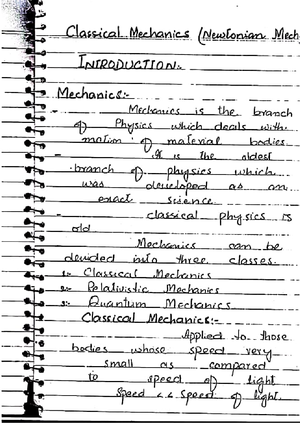 Classical Mechanics (Newtonian Mech
INTRODUCTION:-
Mechanics:-
Mechanics is the branch
of Physics which deals with
motion of material bodies
- It is the oldest
branch of physics which
was developed as an
exact science
- classical physics is
old
Mechanics can be
devided into three classes.
1:- Classical Mechanics
2:- Relativistic Mechanics
3:- Quantum Mechanics
Classical Mechanics:-
Applied to those
bodies whose speed very
small as compared
to speed of light
Speed << Speed of light.